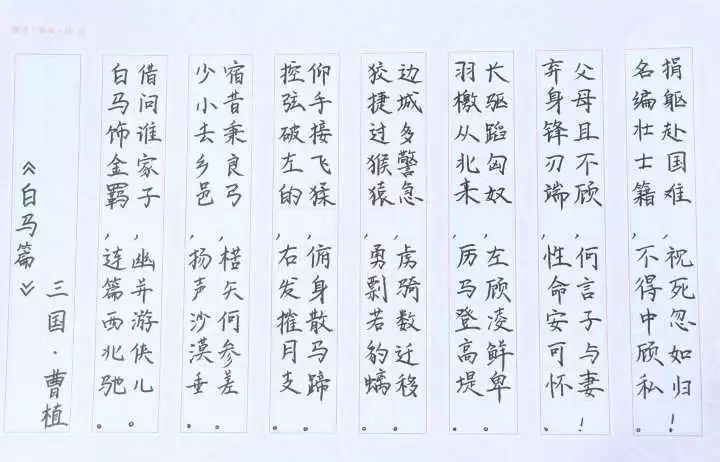 《白马篇》
三国·曹植
白马饰金羁,连篇西北驰。
借问谁家子,幽并游侠儿。
少小去乡邑,扬声沙漠垂。
宿昔秉良弓,楛矢何参差。
控弦破左的,右发摧月支。
仰手接飞猱,俯身散马蹄。
狡捷过猴猿,勇剽若豹螭。
边城多警急,虏骑数迁移。
羽檄从北来,厉马登高堤。
长驱蹈匈奴,左顾凌鲜卑。
弃身锋刃端,性命安可怀。
父母且不顾,何言子与妻!
名编壮士籍,不得中顾私。
捐躯赴国难,视死忽如归!